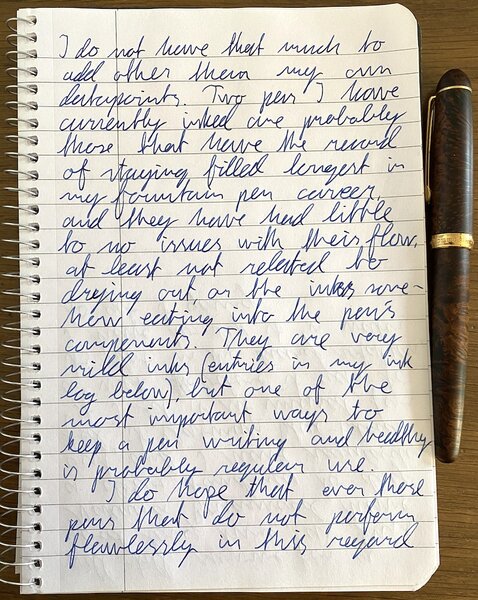 I do not have that much to
add other than my own
datapoints. Two pens I have
currently inked are probably
those that have the record
of staying filled longest in
my fountain pen career,
and they have had little
to no issues with their flow,
at least not related to
drying out, or the inks some-
how eating into the pen's
components. They are very
mild inks (entries in my ink
log below), but one of the
most important ways to
keep a pen writing and healthy
is probably regular use.
I do hope that even those
pens that do not perform
flawlessly in this regard